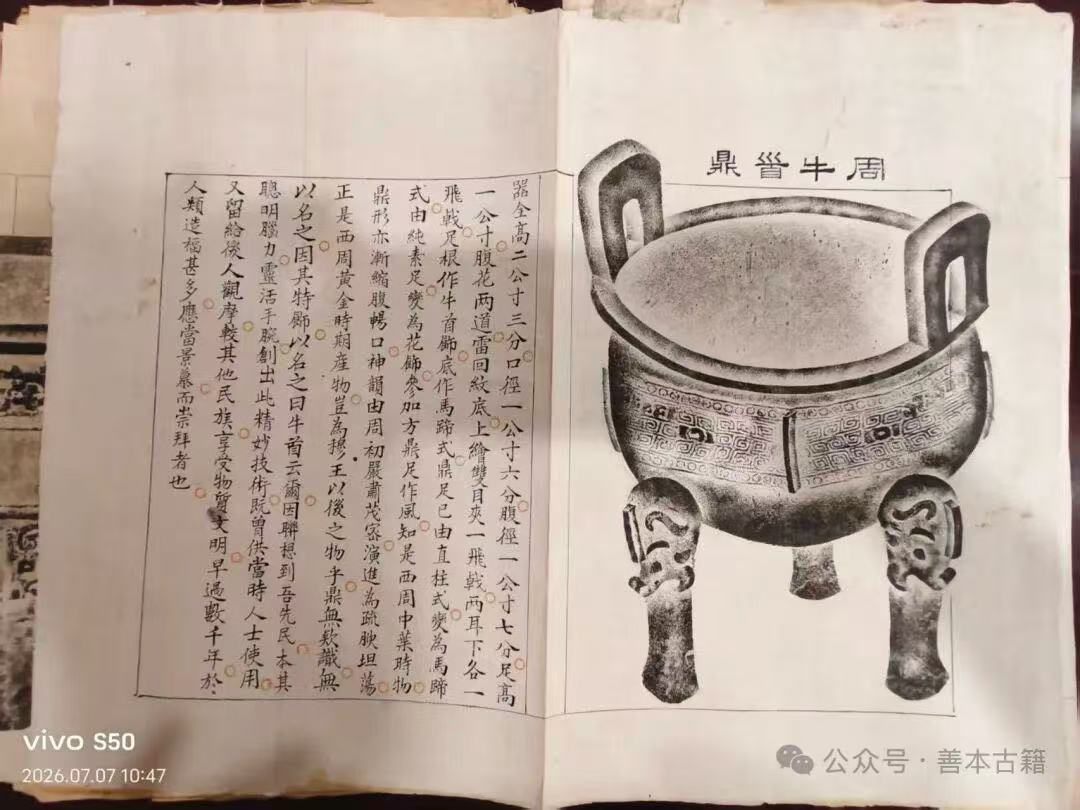 周牛首鼎
器全高二公寸三分口徑一公寸六分腹徑一公寸七分足高
一公寸腹花兩道雷回紋底上繪雙目夾一飛戟兩耳下各一
飛戟足根作牛首飾底作馬蹄式鼎足已由直柱式變為馬蹄
式由純素足變為花飾參加方鼎足作風知是西周中葉時物
鼎形亦漸縮腹暢口神韻由周初嚴肅茂密演進為疏腴坦蕩
正是西周黃金時期産物豈為穆王以後之物乎鼎無欵識無
以名之因其特飾以名之曰牛首云爾因聯想到吾先民本其
聰明腦力靈活手腕創出此精妙技術既曾供當時人士使用
又留給後人觀摩較其他民族享受物質文明早過數千年於
人類造福甚多應當景慕而崇拜者也
vivo S50
2026.07.07 10:47
公众号·善本古籍